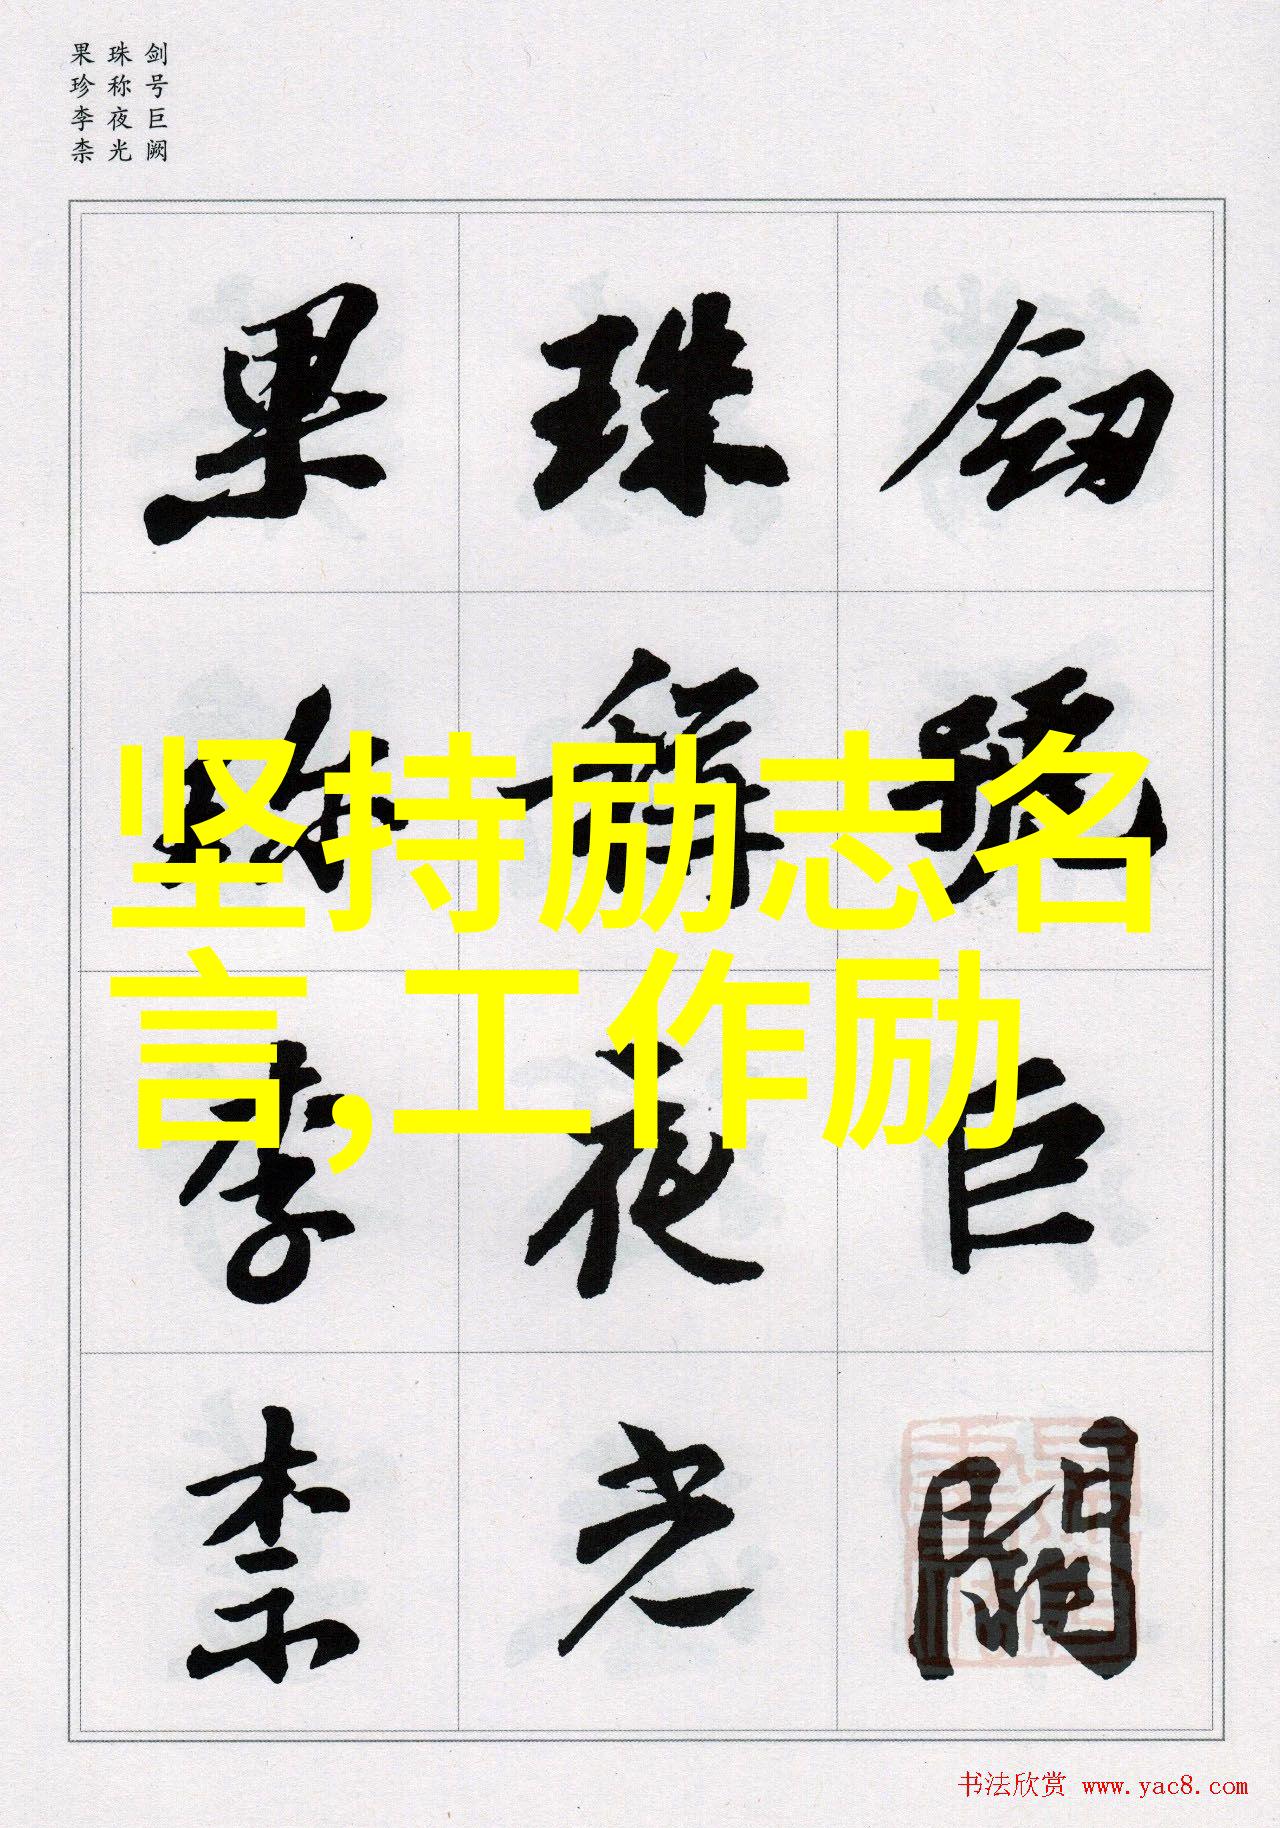 剑号巨阙
珠称夜光
果珍李柰
劒號巨闕
珠稱夜光
果珍李柰
坚持励志名
言,工作励
书法欣赏 www.yac8.com